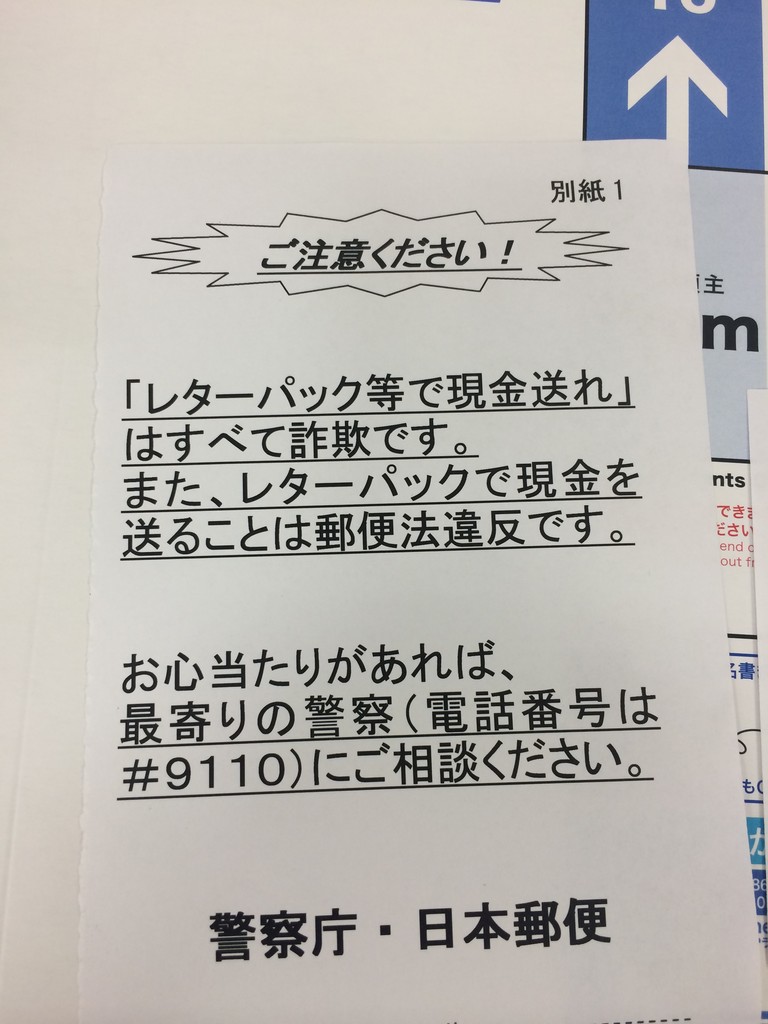 別紙1
ご注意ください!
「レターパック等で現金送れ」
はすべて詐欺です。
また、レターパックで現金を
送ることは郵便法違反です。
お心当たりがあれば、
最寄りの警察(電話番号は
#9110)にご相談ください。
警察庁・日本郵便
主
m
nts
でき
ださい
end
out